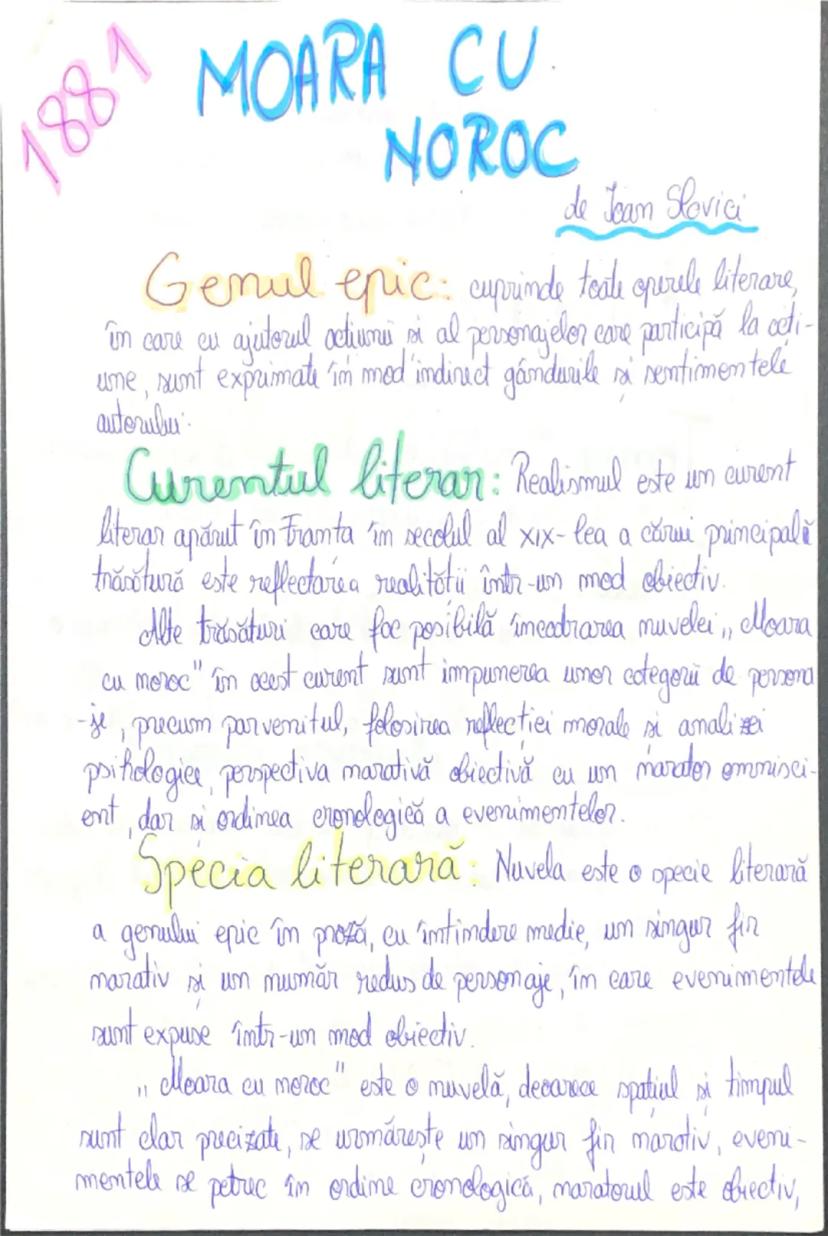 1881
MOARA CU
NOROC
de Ioan Slavici
Genul epic: cuprinde toate operele literare,
în care cu ajutorul acțiunii și al personajelor care participă la acți-
une, sunt exprimate în mod indirect gândurile și sentimentele
autorului.
Curentul literar: Realismul este un curent
literar apărut în Franta în secolul al XIX-lea a cărui principală
trăsătură este reflectarea realității într-un mod obiectiv.
Alte trăsături care fac posibilă încadrarea nuvelei „Moara
cu noroc" în acest curent sunt impunerea unor categorii de persona
-je, precum parvenitul, folosirea reflecției morale și analizei
psihologice, perspectiva narativă obiectivă cu un narator omnisci-
ent, dar și ordinea cronologică a evenimentelor.
Specia literară: Nuvela este o specie literară
a genului epic în proză, cu întindere medie, un singur fir
narativ și un număr redus de personaje, în care evenimentele
sunt expuse într-un mod obiectiv.
„Moara cu noroc" este o nuvelă, deoarece spațiul și timpul
sunt clar precizate, se urmărește un singur fir narativ, eveni-
mentele se petrec în ordine cronologică, naratorul este obiectiv,